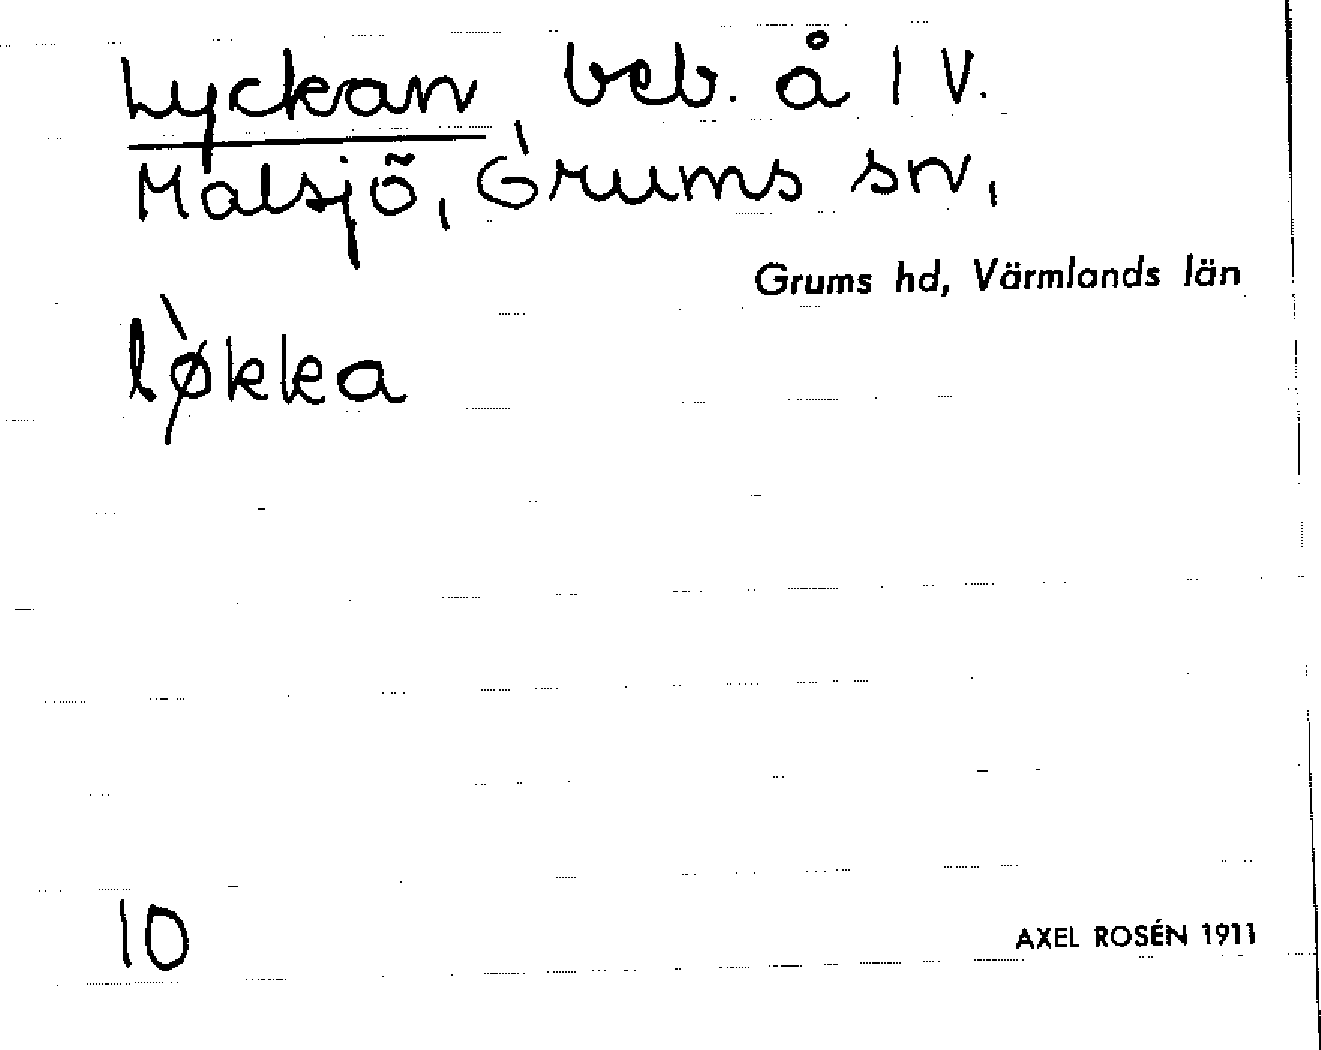 Lyckan, beb. å 1 V.
Malsjö, Grums sn,
Grums hd, Värmlands län
lø̀kka
10
AXEL ROSÉN 1911